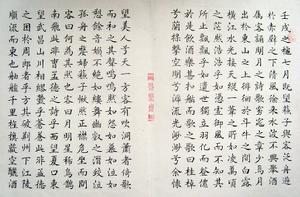 壬戌之秋七月既望蘇子與客泛舟遊
於赤壁之下清風徐來水波不興舉酒
屬客誦明月之詩歌窈窕之章少焉月
出於東山之上徘徊於斗牛之間白露
橫江水光接天縱一葦之所如凌萬頃
之茫然浩浩乎如憑虛御風而不知其
所止飄飄乎如遺世獨立羽化而登僊
於是飲酒樂甚扣舷而歌之歌曰桂棹
兮蘭槳擊空明兮泝流光渺渺兮予懷
望美人兮天一方客有吹洞簫者倚歌
而和之其聲嗚嗚然如怨如慕如泣如
愬餘音嫋嫋不絕如縷舞幽壑之潛蛟泣
孤舟之嫠婦蘇子愀然正襟危坐而問
客曰何為其然也客曰月明星稀烏鵲
南飛此非曹孟德之詩乎西望夏口東
望武昌山川相繆鬱乎蒼蒼此非孟德
之困於周郎者乎方其破荊州下江陵
順流而東也舳艫千里旌旗蔽空釃酒